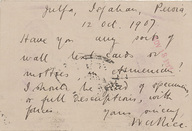 Julfa, Ispahan, Persia
12 Oct. 1907
Have you any sort of
wall
mottoes in Armenian?
I should be glad of specimens
or full descriptions, with
prices Yours sincerely